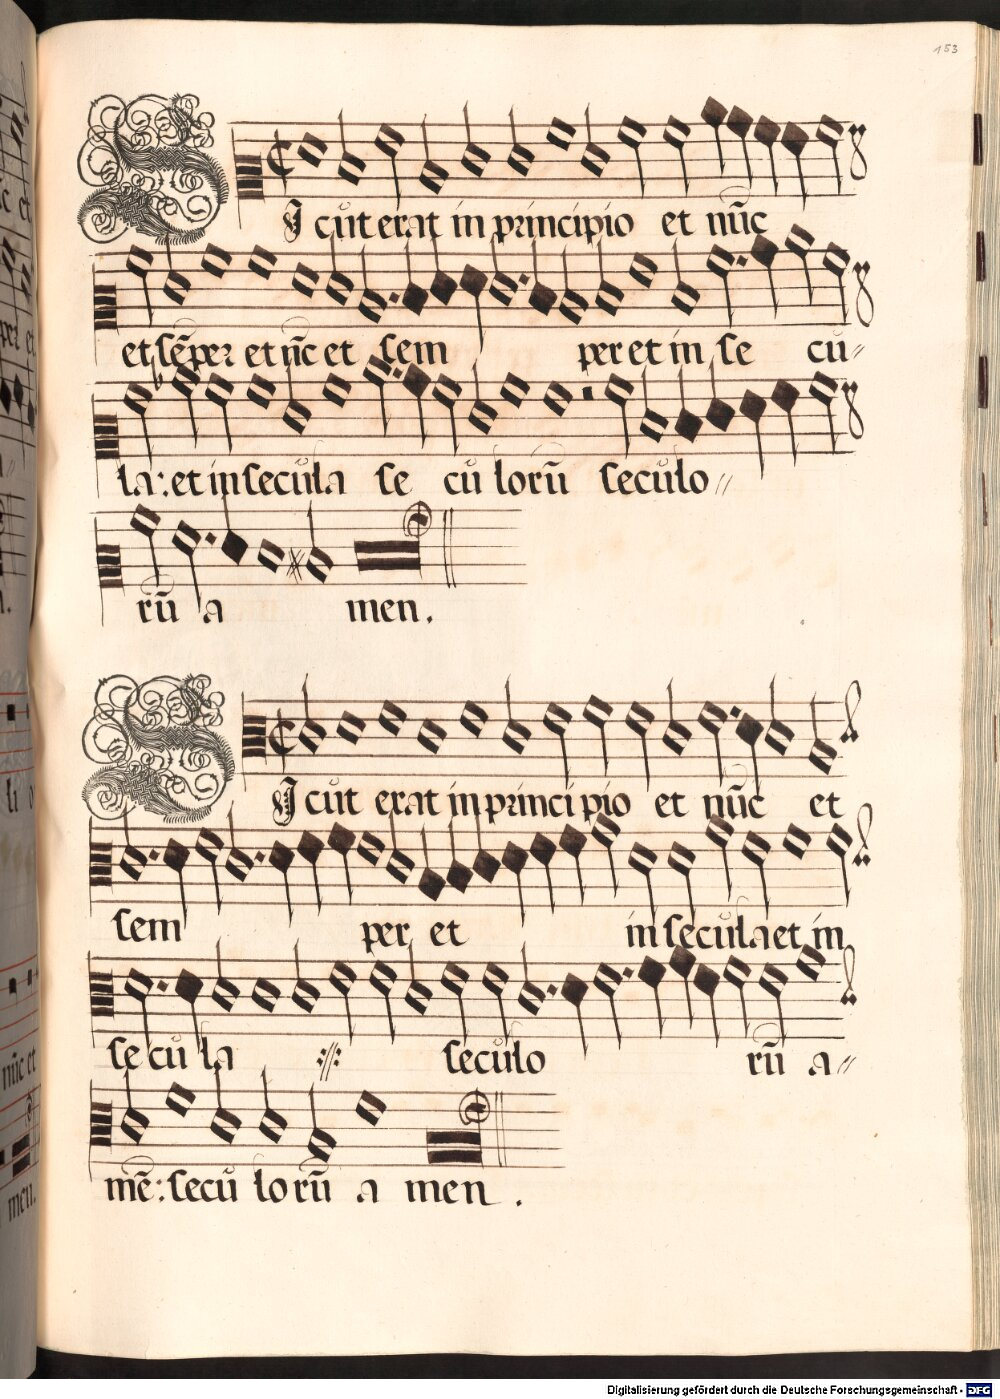 153
Sicut erat in principio et nũc
et sẽper et nũc et sem per et in se cu
la: et in secula se cũ lorũ seculo
rũ a men.
Sicut erat in principio et nũc et
sem per et in secula et in
se cu la :// : seculo rũ a
mẽ: secũ lo rũ a men.
nũc et
men.
Digitalisierung gefördert durch die Deutsche Forschungsgemeinschaft - DFG